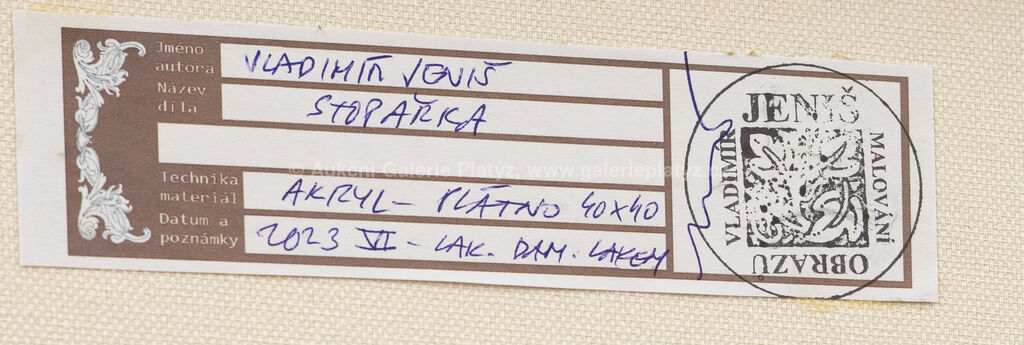 Jméno autora VLADIMÍR JENIŠ
Název díla STOPAŘKA
© Aukční Galerie Platýz, www.galerieplatyz.cz
Technika materiál AKRYL – PLÁTNO 40x40
Datum a poznámky 2023 VI – LAK. DAM. LAKEM
JENIŠ
VLADIMÍR
MALOVÁNÍ
OBRAZŮ